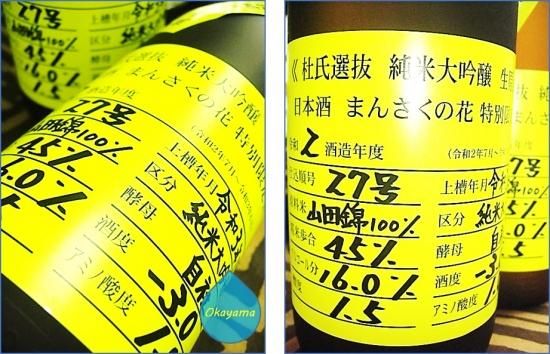 27号
16.0%
杜氏選抜 純米大吟醸
まんさくの花 特別
27号
上槽年月 令和3
山田錦100%
区分 純米大
45%
酵母 自社
16.0%
酒度 -3.0
アミノ酸度 1.
Okayama
《杜氏選抜 純米大吟醸 生
日本酒 まんさくの花 特別限
令和 2 酒造年度 (令和2年7月~
仕込順号 27号 上槽年月 令和
原料米 山田錦100% 区分 純米
精米歩合 45% 酵母 自
アルコール分 16.0% 酒度 -3
酸度 1.5 アミノ酸度 1
27号